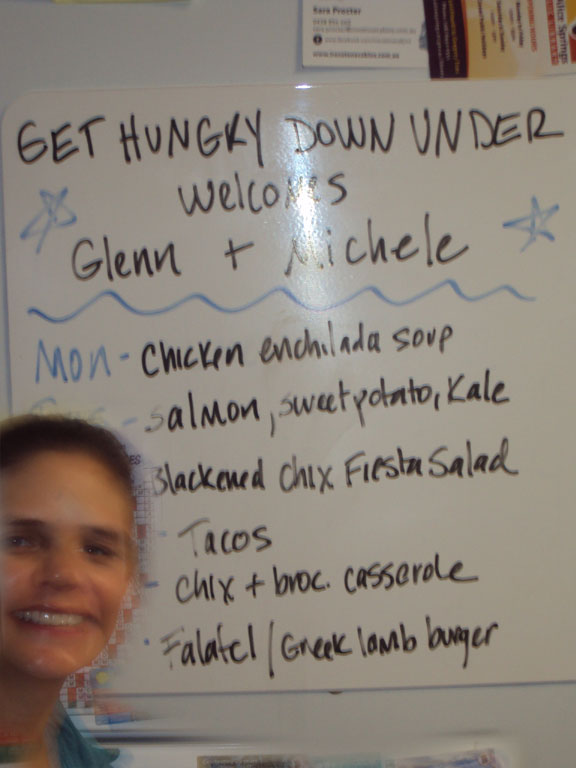 Sara Proctor
Alice Springs
GET HUNGRY DOWN UNDER
Welcomes
Glenn + Michele
Mon - Chicken enchilada soup
- Salmon, sweet potato, Kale
Blackened Chix Fiesta Salad
- Tacos
- Chix + broc. casserole
- Falafel / Greek lamb burger